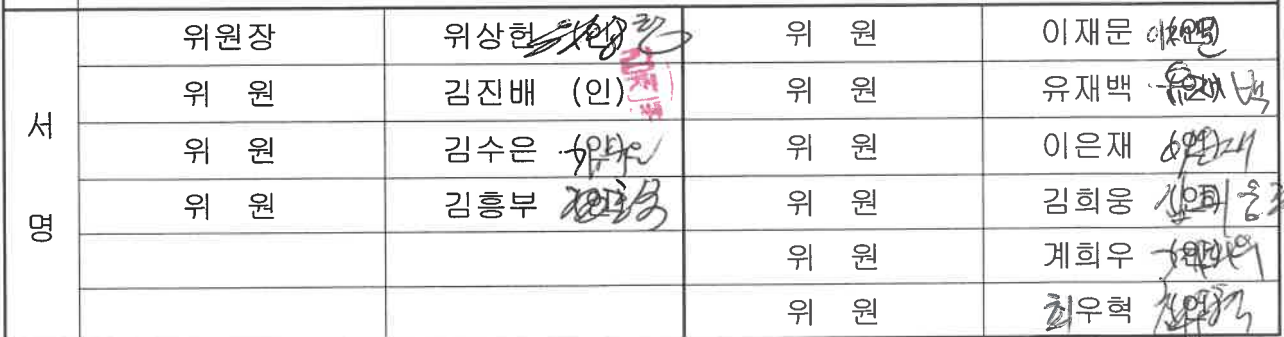 서명
위원장 위상헌 (인) 위 원 이재문 (인)
위 원 김진배 (인) 위 원 유재백 (인)
위 원 김수은 (인) 위 원 이은재 (인)
위 원 김흥부 (인) 위 원 김희웅 (인)
위 원 계희우 (인)
위 원 최우혁 (인)